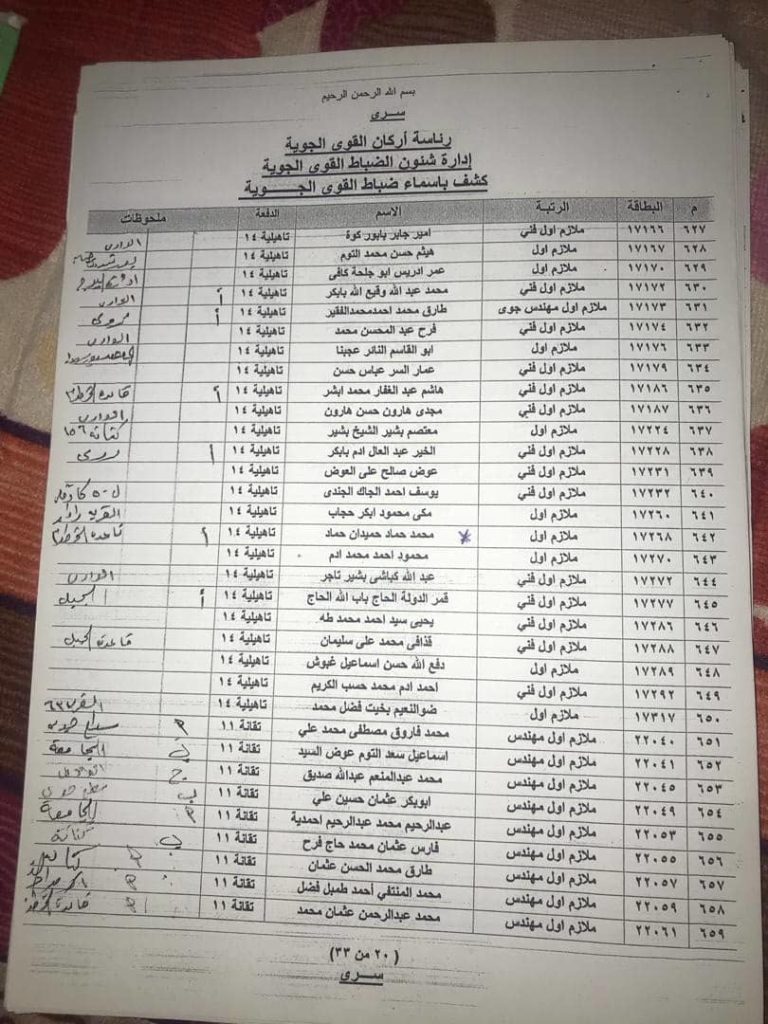 بسم الله الرحمن الرحيم
سـرى
رئاسة أركان القوى الجوية
إدارة شئون الضباط القوى الجوية
كشف باسماء ضباط القوى الجـــوية
م البطاقة الرتبة الاسم الدفعة ملحوظات
٦٢٧ ١٧١٦٦ ملازم اول فني امير جابر بابور كوة تاهيلية ١٤
٦٢٨ ١٧١٦٧ ملازم اول هيثم حسن محمد التوم تاهيلية ١٤
٦٢٩ ١٧١٧٠ ملازم اول فني عمر ادريس ابو جلحة كافى تاهيلية ١٤
٦٣٠ ١٧١٧٢ ملازم اول فني محمد عبد الله وقيع الله بابكر تاهيلية ١٤ أ
٦٣١ ١٧١٧٣ ملازم اول مهندس جوى طارق محمد احمدمحمدالفقير تاهيلية ١٤ أ
٦٣٢ ١٧١٧٤ ملازم اول فني فرح عبد المحسن محمد تاهيلية ١٤
٦٣٣ ١٧١٧٦ ملازم اول ابو القاسم النائر عجبنا تاهيلية ١٤
٦٣٤ ١٧١٧٩ ملازم اول فني عمار السر عباس حسن تاهيلية ١٤
٦٣٥ ١٧١٨٦ ملازم اول فني هاشم عبد الغفار محمد ابشر تاهيلية ١٤ أ
٦٣٦ ١٧١٨٧ ملازم اول فني مجدى هارون حسن هارون تاهيلية ١٤
٦٣٧ ١٧٢٢٤ ملازم اول معتصم بشير الشيخ بشير تاهيلية ١٤
٦٣٨ ١٧٢٢٨ ملازم اول فني الخير عبد العال ادم بابكر تاهيلية ١٤ أ
٦٣٩ ١٧٢٣١ ملازم اول فني عوض صالح على العوض تاهيلية ١٤
٦٤٠ ١٧٢٣٢ ملازم اول فني يوسف احمد الجاك الجندى تاهيلية ١٤
٦٤١ ١٧٢٦٠ ملازم اول مكى محمود ابكر حجاب تاهيلية ١٤
٦٤٢ ١٧٢٦٨ ملازم اول محمد حماد حميدان حماد تاهيلية ١٤ أ
٦٤٣ ١٧٢٧٠ ملازم اول محمود احمد محمد ادم تاهيلية ١٤
٦٤٤ ١٧٢٧٢ ملازم اول فني عبد الله كباشى بشير تاجر تاهيلية ١٤
٦٤٥ ١٧٢٧٧ ملازم اول فني قمر الدولة الحاج باب الله الحاج تاهيلية ١٤ أ
٦٤٦ ١٧٢٨٦ ملازم اول فني يحيى سيد احمد محمد طه تاهيلية ١٤
٦٤٧ ١٧٢٨٨ ملازم اول فني قذافى محمد على سليمان تاهيلية ١٤
٦٤٨ ١٧٢٨٩ ملازم اول دفع الله حسن اسماعيل غبوش تاهيلية ١٤
٦٤٩ ١٧٢٩٢ ملازم اول فني احمد ادم محمد حسب الكريم تاهيلية ١٤
٦٥٠ ١٧٣١٧ ملازم اول ضوالنعيم بخيت فضل محمد تاهيلية ١٤
٦٥١ ٢٢٠٤٠ ملازم اول مهندس محمد فاروق مصطفى محمد علي تقانة ١١
٦٥٢ ٢٢٠٤١ ملازم اول مهندس اسماعيل سعد التوم عوض السيد تقانة ١١ ب الجامعة
٦٥٣ ٢٢٠٤٥ ملازم اول مهندس محمد عبدالمنعم عبدالله صديق تقانة ١١ ج
٦٥٤ ٢٢٠٤٩ ملازم اول مهندس ابوبكر عثمان حسين علي تقانة ١١ ب
٦٥٥ ٢٢٠٥٣ ملازم اول مهندس عبدالرحيم محمد عبدالرحيم احمدية تقانة ١١ الجامعة
٦٥٦ ٢٢٠٥٥ ملازم اول مهندس فارس عثمان محمد حاج فرح تقانة ١١ ب
٦٥٧ ٢٢٠٥٧ ملازم اول مهندس طارق محمد الحسن عثمان تقانة ١١
٦٥٨ ٢٢٠٥٩ ملازم اول مهندس محمد المنتفي أحمد طمبل فضل تقانة ١١
٦٥٩ ٢٢٠٦١ ملازم اول مهندس محمد عبدالرحمن عثمان محمد تقانة ١١
( ٢٠ من ٣٣)
سـرى